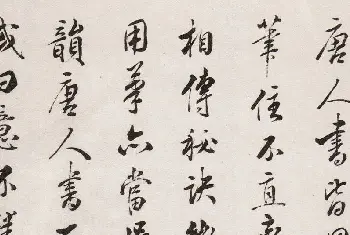 唐人書皆
筆住不直
相傳秘訣
用筆亦當
韻唐人書
曰意不